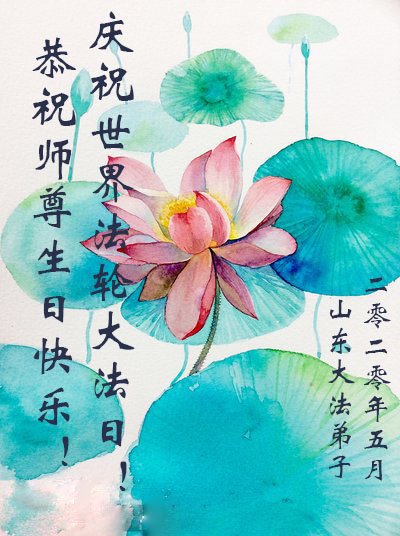 庆祝世界法轮大法日！
恭祝师尊生日快乐！
二零二零年五月
山东大法弟子